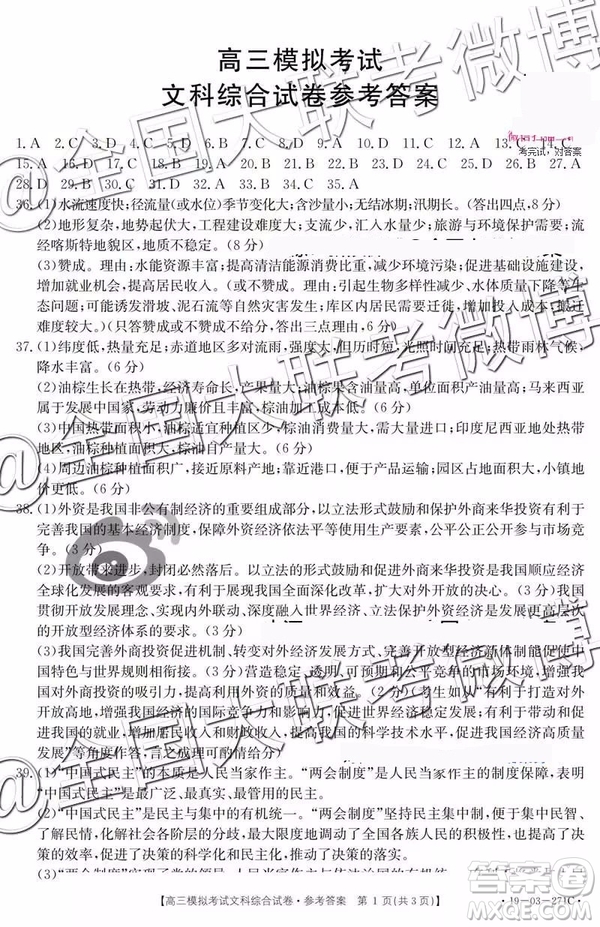 高三模拟考试
文科综合试卷参考答案
1. A 2. C 3. D 4. C 5. D 6. B 7. D 8. C 9. D 10. C 11. A 12. A 13. C 14. C
考完试，对答案
15. A 16. D 17. D 18. C 19. A 20. B 21. C 22. D 23. C 24. B 25. D 26. B 27. A
28. D 29. B 30. A 31. D 32. B 33. B 34. C 35. A
36. (1)水流速度快；径流量(或水位)季节变化大；含沙量小；无结冰期；汛期长。(答出四点，8 分)
(2)地形复杂，地势起伏大，工程建设难度大；支流多，汇入水量大；旅游与环境保护需要；河
流经喀斯特地貌区，地质不稳定。(8 分)
(3)赞成。理由：水能资源丰富；提高清洁能源消费比重，减少环境污染；促进基础设施建设，
提高居民收入。(6 分)(或不赞成。理由：水电站建设对水质、水温、泥沙、水生生物等生
态问题；可能诱发滑坡、泥石流等自然灾害；库区内居民需要迁移，增加投入成本；淹没
土地等。)(只答赞成或不赞成不给分，共 6 分)
37. (1)纬度低，热量充足；赤道地区多对流雨，强度大，但历时短，光照时间充足；热带雨林气候，
降水丰富。(6 分)
(2)油棕生长在热带，经济寿命长，芒果量大；油棕产油率高，单位面积产油量高；马来西亚
属于发展中国家，劳动力廉价且丰富，棕油加工成本低。(6 分)
(3)中国热带面积小，油棕适宜种植区面积小，棕油产量小；印度尼西亚和中国相比，纬度
低，油棕种植面积大，棕油产量大。(6 分)
(4)周边油棕种植面积广，接近原料产地；靠近港口，便于产品运输；园区占地面积小，小镇地
价低。(6 分)
38. (1)外资是我国非公有制经济的重要组成部分，以立法形式鼓励和保护外商来华投资有利于
完善我国的基本经济制度，保障外资经济依法平等使用生产要素、公平公正参与市场竞
争。(3 分)
(2)开放带来进步，封闭必然落后，以立法形式鼓励和保护外商来华投资是我国顺应经济
全球化发展的客观要求。(3 分)积极引进外资、立法保护外商投资经济是发展更高层次
的开放型经济体系的要求。(3 分)
(3)我国完善外商投资促进机制、加强外商投资保护，完善开放型经济新体制能够促进中
国特色与世界规则相衔接。(3 分)营造稳定、透明、可预期和公平竞争的市场环境，增强我
国对外商投资的吸引力，提高引进外资的质量。(2 分)(或生答如有利于打造对外
开放新格局，增强我国经济的国际竞争力和影响力、推动经济高质量发展、促进改革和
发展成果共享、增加居民收入和财政收入、促进经济稳定发展、增加就业岗位和促进就业
等，如果符合题意可酌情给分)
39. (1)“中国式民主”是人民当家作主。“两会制度”是人民当家作主的制度保障，表明
“中国式民主”是最广泛、最真实、最管用的民主。(3 分)
(2)“中国式民主”是民主与集中的有机统一。“两会制度”坚持民主集中制，便于集中民智、
了解民情、集中社会各阶层的分歧，最大程度地达成共识，形成最大公约数，最大限度地提
高了决策的效率，促进了决策的科学化和民主化。(3 分)
(3)“两会制度”
【高三模拟考试文科综合试卷·参考答案 第 1 页(共 3 页)】
·19－03－271C·
@全国大联考微博
@全国大联考微博
答案圈